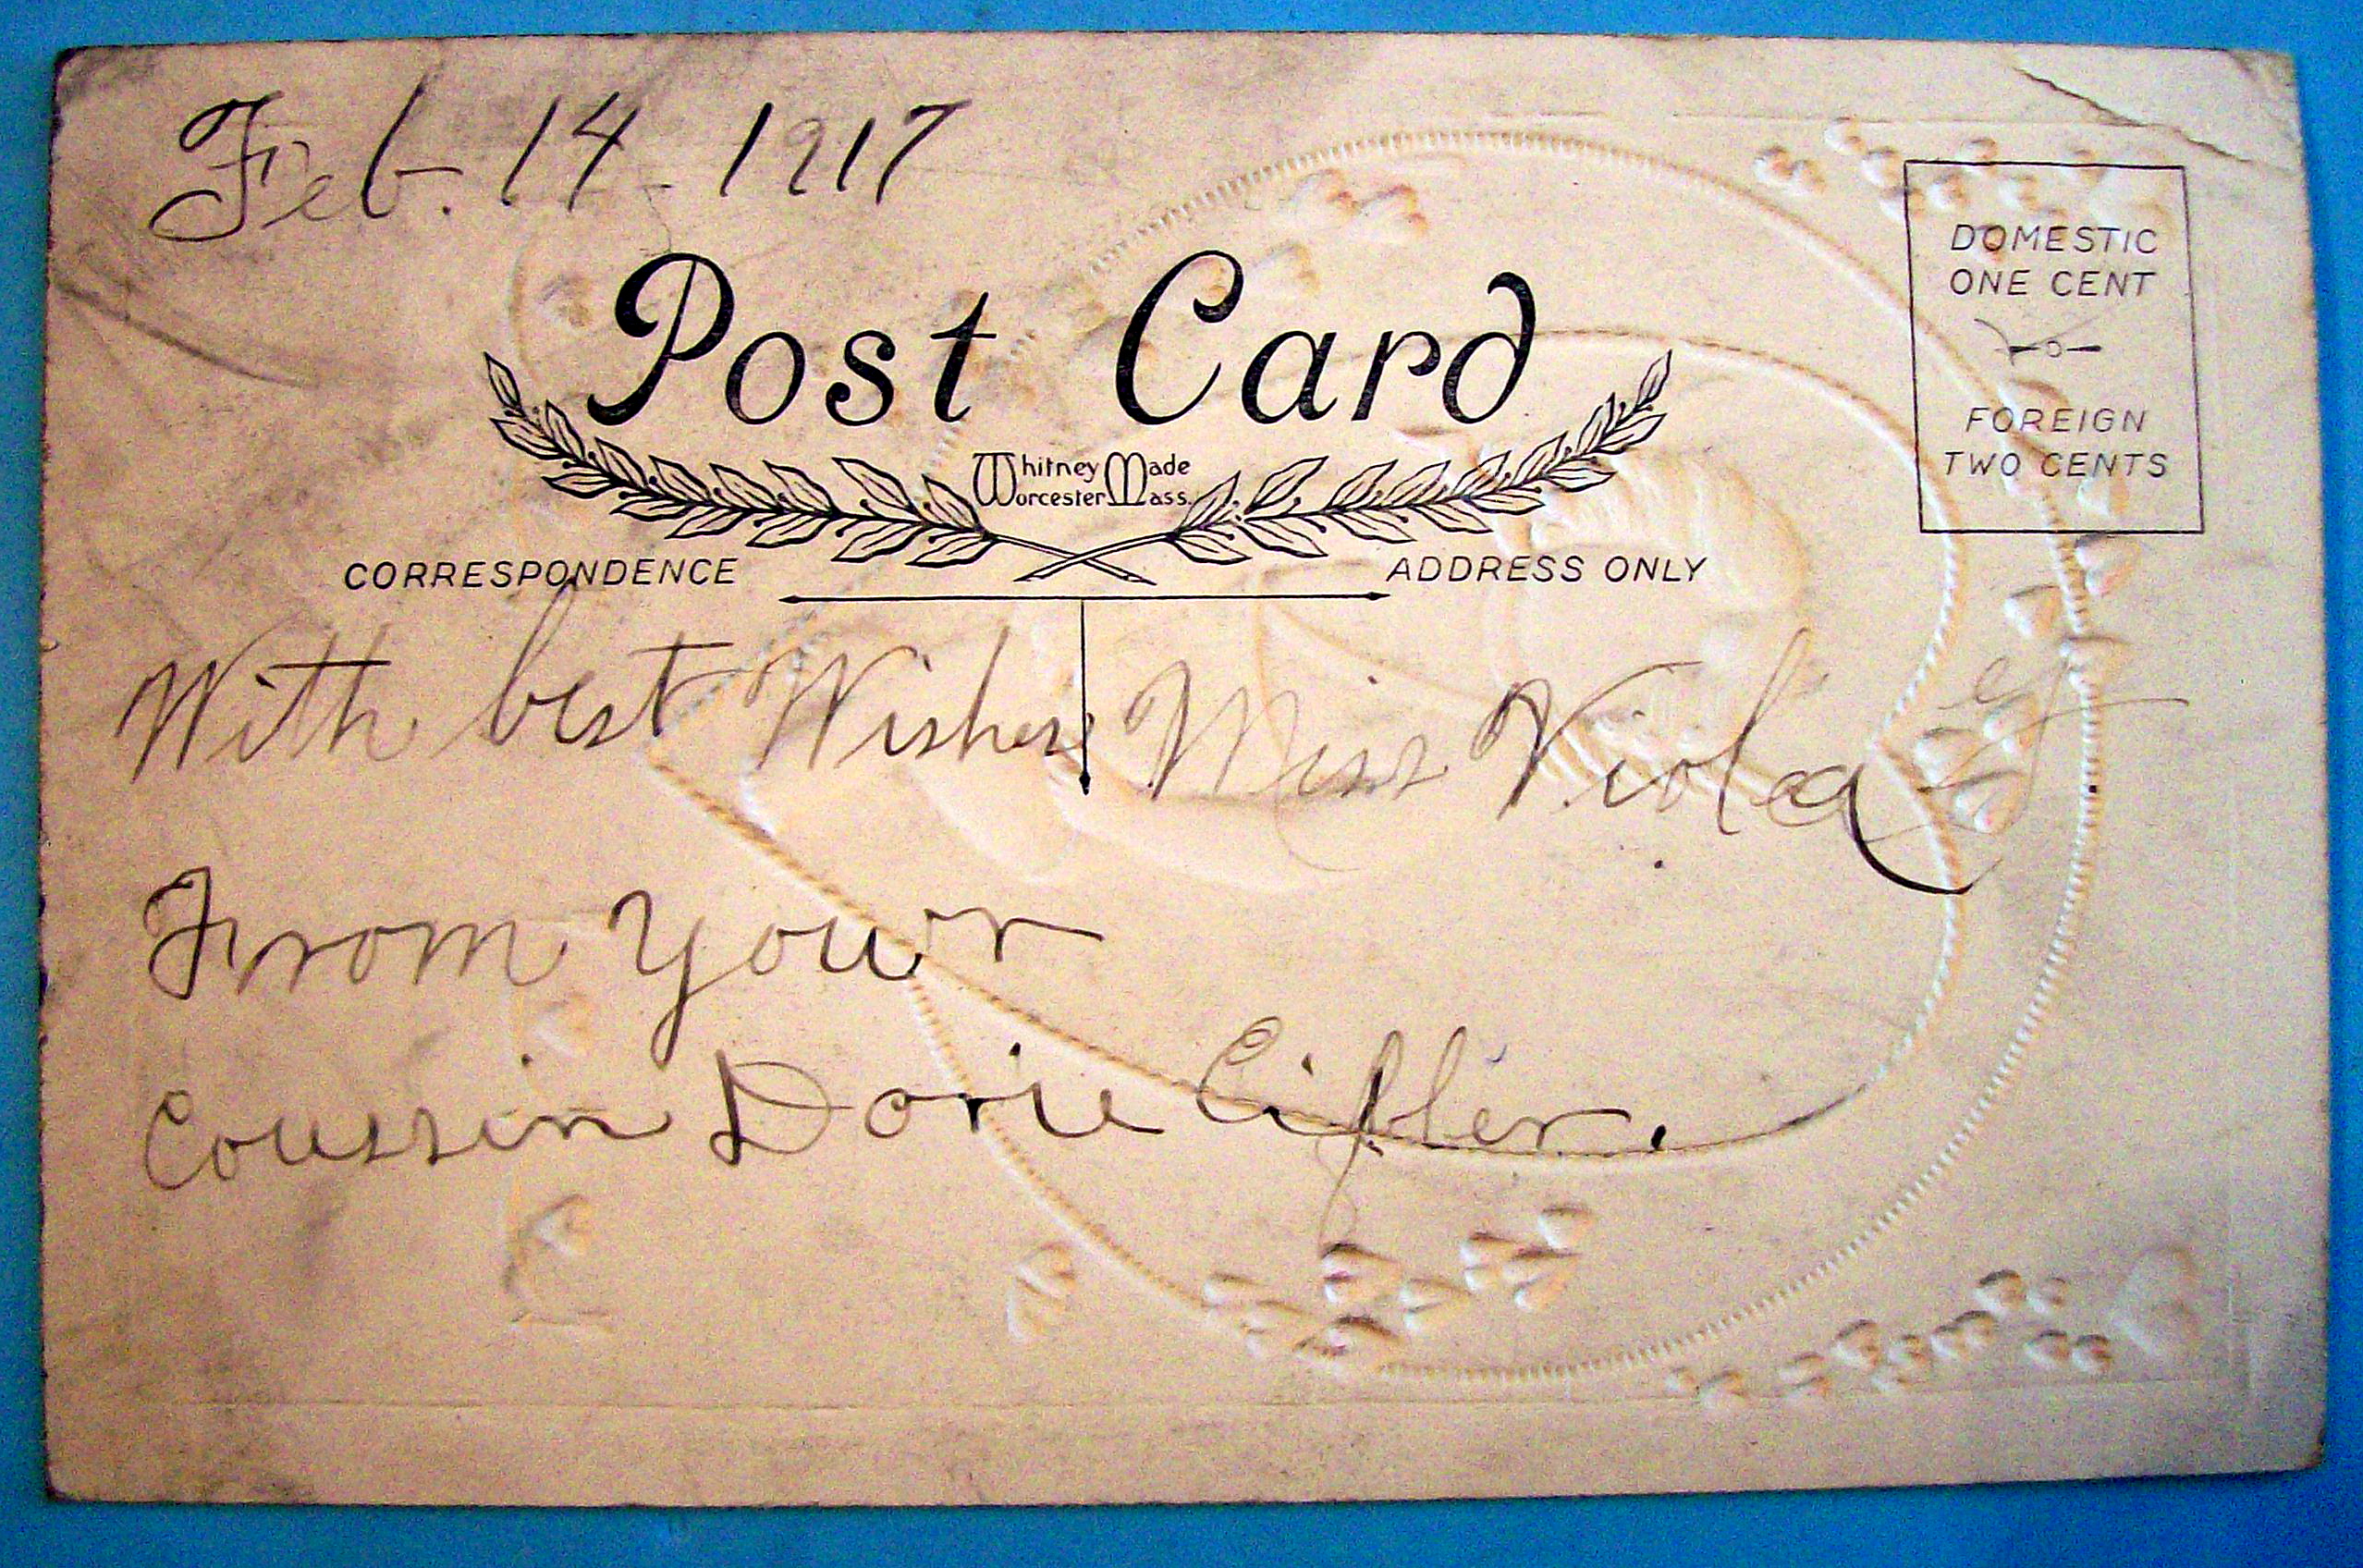 Feb. 14 - 1917
Post Card
Whitney Made
Worcester Mass.
DOMESTIC
ONE CENT
FOREIGN
TWO CENTS
CORRESPONDENCE
ADDRESS ONLY
With best Wishes Miss Viola
From Your
Coussin Dorie Eifler.